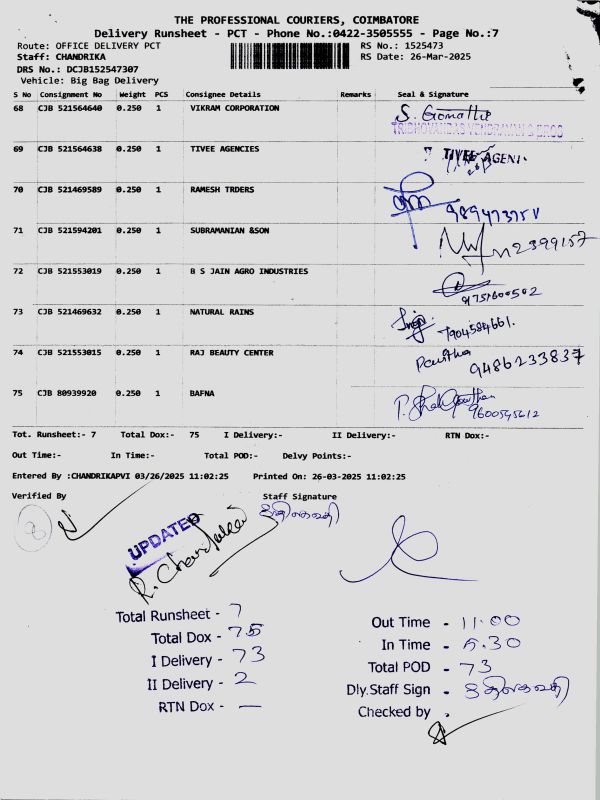 THE PROFESSIONAL COURIERS, COIMBATORE
Delivery Runsheet - PCT - Phone No.:0422-3505555 - Page No.:7
Route: OFFICE DELIVERY PCT RS No.: 1525473
Staff: CHANDRIKA RS Date: 26-Mar-2025
DRS No.: DCJB152547307
Vehicle: Big Bag Delivery
S No Consignment No Weight PCS Consignee Details Remarks Seal & Signature
68 CJB 521564640 0.250 1 VIKRAM CORPORATION S. Gomathi
TRIBHOVANDAS VENDRAVAN & BROS
69 CJB 521564638 0.250 1 TIVEE AGENCIES TIVEE AGENI.
70 CJB 521469589 0.250 1 RAMESH TRDERS
71 CJB 521594201 0.250 1 SUBRAMANIAN &SON
72 CJB 521553019 0.250 1 B S JAIN AGRO INDUSTRIES
9751600502
73 CJB 521469632 0.250 1 NATURAL RAINS
7904584661.
74 CJB 521553015 0.250 1 RAJ BEAUTY CENTER Pavitha
9486233837
75 CJB 80939920 0.250 1 BAFNA
9600545612
Tot. Runsheet:- 7 Total Dox:- 75 I Delivery:- II Delivery:- RTN Dox:-
Out Time:- In Time:- Total POD:- Delvy Points:-
Entered By :CHANDRIKAPVI 03/26/2025 11:02:25 Printed On: 26-03-2025 11:02:25
Verified By Staff Signature
UPDATED
Total Runsheet - 7
Total Dox - 75
I Delivery - 73
II Delivery - 2
RTN Dox - —
Out Time - 11.00
In Time - 5.30
Total POD - 73
Dly.Staff Sign -
Checked by -